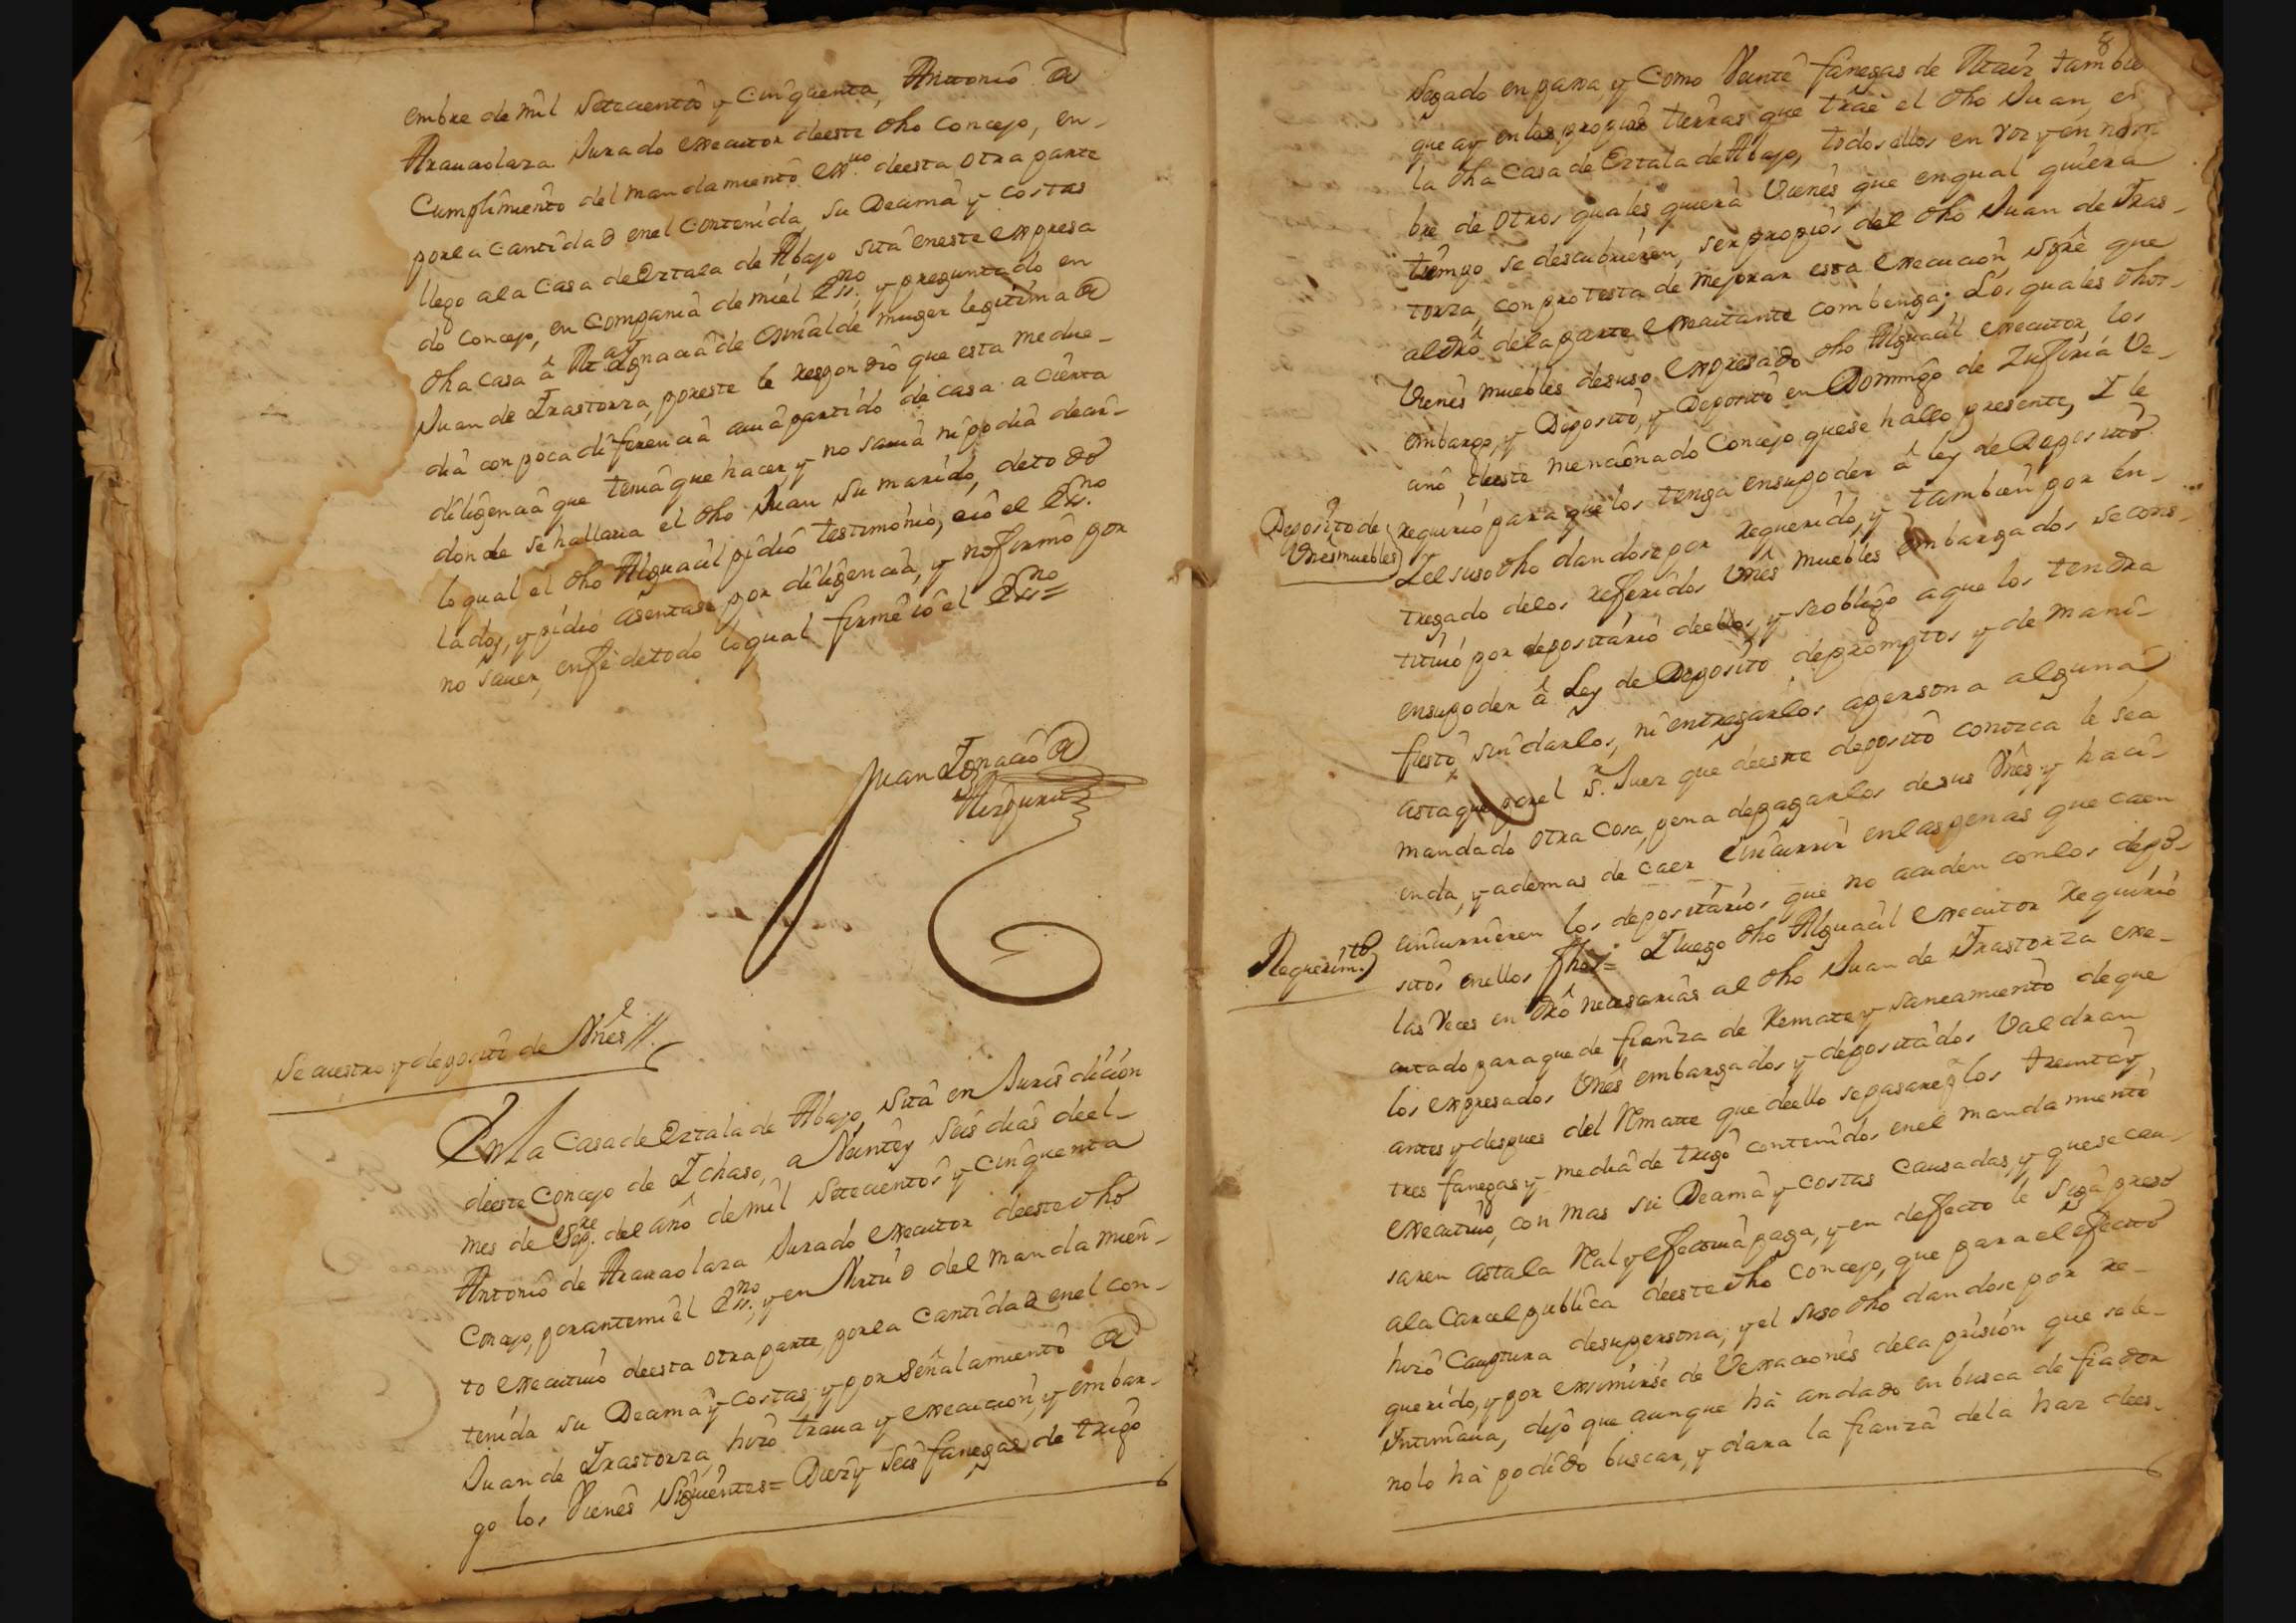 embre de mil Setecientos y cinquenta, Antonio de
Arauaolaza Jurado executor deeste dho concejo, en
Cumplimiento del mandamiento exvo deesta otra parte
por la cantidad enel contenida, su Decima y costas
llego ala Casa de Eztala de Abajo sita eneste expresa
do concejo, en compania de mi el Essno y preguntado en
dha casa â Ma Ignacia de Osinalde muger legitima de
Juan de Irastorza, poreste le respondio que esta medio
dia con poca diferencia auia partido de casa a cierta
diligencia que tenia que hacer, y no sauia ni podia decir
donde se hallaria el dho Juan su marido, detodo
loqual el dho Alguacil pidio testimonio, eio el Essno
lado, y pidio asentase por diligencia, y nofirmo por
no sauer, enfe detodo loqual firme io el Essno=
Juan Ignacio de
Aizpuru
Sequestro y deposito de Vnes //.
En la Casa de Eztala de Abajo, sita en Jurisdicion
deeste Concejo de Ichaso, a Veinte y Seis dias deel
mes de Sepre. del año de mil Setecientos y Cinquenta
Antonio de Arauaolaza Jurado executor deeste dho
Concejo, por antemi el Essno, y en Virtud del mandamien-
to executiuo deesta otra parte, por la Cantidad enel con-
tenida su Decima y costas, y por señalamiento de
Juan de Irastorza, hizo traua y execucion, y embar-
go los Vienes siguientes= Diez y seis fanegas de trigo
8
Segado en parva, y como Veinte fanegas de Maiz tambien
que ay en las propias tierras que trae el dho Juan, en
la dha Casa de Eztala de Abajo, todos ellos en voz y en nom
bre de otros quales quiera Vienes que en qual quiera
tiempo se descubrieren, ser propios del dho Juan de Iras-
torza, con protesta de mejorar esta execucion sgre que
al dro dela parte executante combenga; Los quales dhos
Vienes muebles desuso expresado dho Alguacil executor, los
embargo, y Deposito, y Deposito en Domingo de Zufiria Ve-
cino deeste mencionado Concejo quese hallo presente, I le
Deposito de
Vnes muebles
requirio para que los tenga ensupoder â ley de Deposito.
I el susodho dandose por requerido, y tambien por en-
tregado delos referidos Vnes muebles embargados se cons-
tituio por depositario deellos, y se obligo a que los tendra
ensupoder â Ley de Deposito depromptos y de mani-
fiesto, sin darlos, ni entregarlos apersona alguna
asta que por el Sr. Juez que deeste deposito conozca le sea
mandado otra cosa, pena depagarlos desus Vnes y haci-
enda, y ademas de caer e incurrir enlas penas que caen
e incurrieren los depositarios que no acuden con los depo-
Requerimto
sitos enellos fhos= I luego dho Alguacil executor Requirio
las veces en dro necesarias al dho Juan de Irastorza exe-
cutado para que de fianza de Remate y Saneamiento de que
los expresados Vnes embargados y depositados Valdran
antes y despues del Rmatte que deello sepasare los treinta y
tres fanegas y media de trigo contenidos enel mandamiento
executiuo, con mas su Decima y costas causadas, y que se cau-
saren asta la Real y efectiua paga, y en defecto le siga preso
ala Carcel publica deeste dho concejo, que para el efecto
hizo Captura desupersona; y el susodho dandose por re-
querido, y por eximirse de Vexaciones dela prision que sele
intimaua, dijo que aunque hà andado en busca de fiador
nolo hà podido buscar, y dara la fianza dela haz dees-